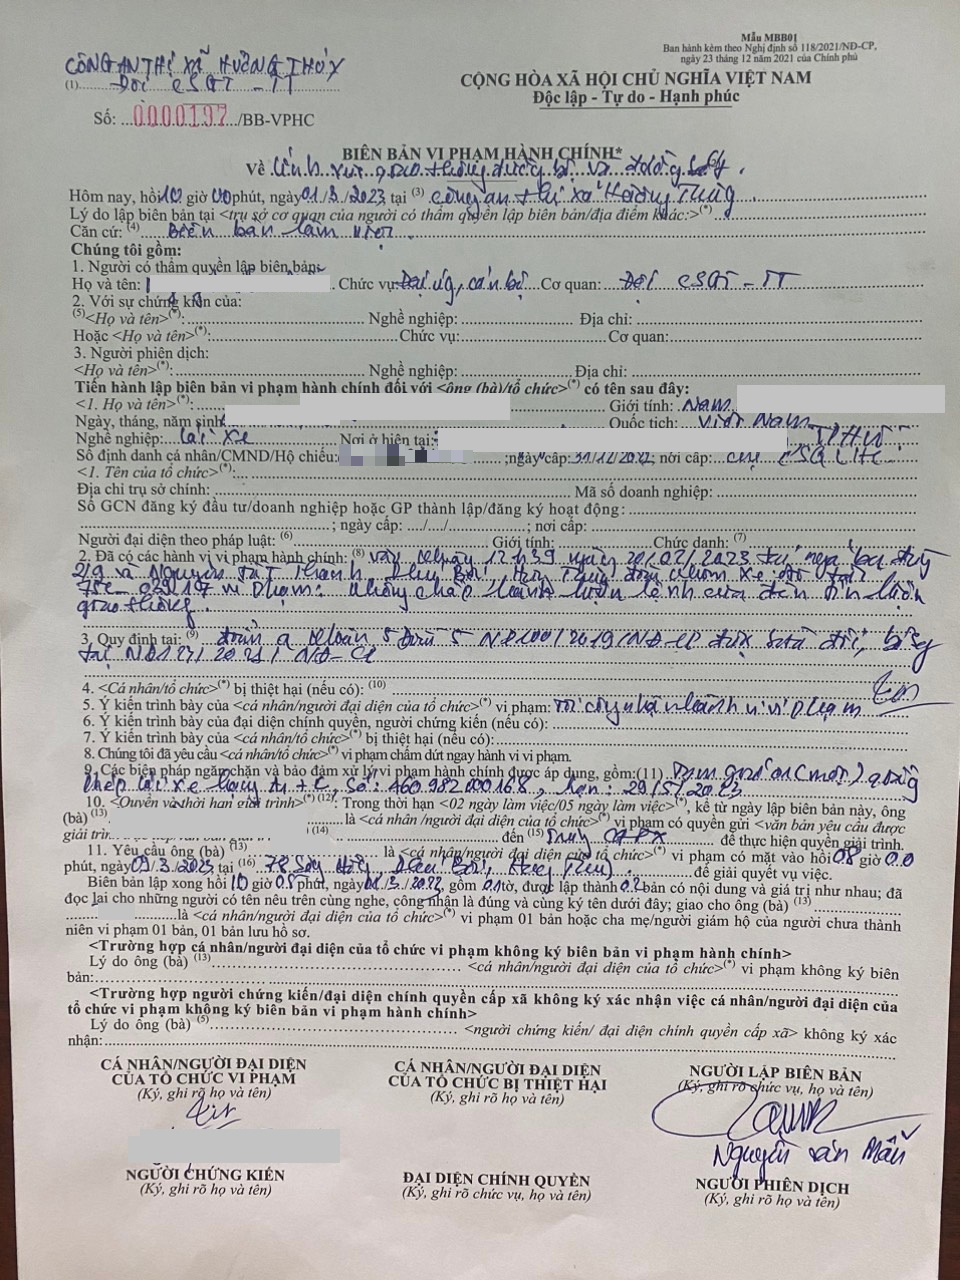 Mẫu MBB01
Ban hành kèm theo Nghị định số 118/2021/NĐ-CP,
ngày 23 tháng 12 năm 2021 của Chính phủ
CÔNG AN THỊ XÃ HƯƠNG THỦY
(1) ĐỘI CSGT - TT
CỘNG HÒA XÃ HỘI CHỦ NGHĨA VIỆT NAM
Độc lập - Tự do - Hạnh phúc
Số: 0000197 /BB-VPHC
BIÊN BẢN VI PHẠM HÀNH CHÍNH*
Về lĩnh vực giao thông đường bộ và đường sắt
Hôm nay, hồi 10 giờ 00 phút, ngày 01/3/2023 tại (3) Công an thị xã Hương Thủy
Lý do lập biên bản tại <trụ sở cơ quan của người có thẩm quyền lập biên bản/địa điểm khác:>(*)
Căn cứ: (4) Biên bản làm việc
Chúng tôi gồm:
1. Người có thẩm quyền lập biên bản:
Họ và tên: Chức vụ: Đại úy, cán bộ Cơ quan: Đội CSGT - TT
2. Với sự chứng kiến của:
(5)<Họ và tên>(*): Nghề nghiệp: Địa chỉ:
Hoặc <Họ và tên>(*): Chức vụ: Cơ quan:
3. Người phiên dịch:
<Họ và tên>(*): Nghề nghiệp: Địa chỉ:
Tiến hành lập biên bản vi phạm hành chính đối với <ông (bà)/tổ chức>(*) có tên sau đây:
<1. Họ và tên>(*): Giới tính: Nam
Ngày, tháng, năm sinh Quốc tịch: Việt Nam
Nghề nghiệp: Lái xe Nơi ở hiện tại: TTHUẾ
Số định danh cá nhân/CMND/Hộ chiếu: ; ngày cấp: 31/12/2021; nơi cấp:
<1. Tên của tổ chức>(*):
Địa chỉ trụ sở chính: Mã số doanh nghiệp:
Số GCN đăng ký đầu tư/doanh nghiệp hoặc GP thành lập/đăng ký hoạt động:
; ngày cấp: ..../..../....; nơi cấp:
Người đại diện theo pháp luật: (6) Giới tính: Chức danh: (7)
2. Đã có các hành vi vi phạm hành chính: (8) Vào khoảng 12h39 ngày 20/02/2023 tại ngã ba đường
2/9 và Nguyễn Tất Thành, Phú Bài, Hương Thủy điều khiển xe ô tô
vi phạm: Không chấp hành hiệu lệnh của đèn tín hiệu
giao thông
3. Quy định tại: (9) điểm a khoản 5 Điều 5 NĐ100/2019/NĐ-CP được sửa đổi, bổ sung
tại NĐ123/2021/NĐ-CP
4. <Cá nhân/tổ chức>(*) bị thiệt hại (nếu có): (10)
5. Ý kiến trình bày của <cá nhân/người đại diện của tổ chức>(*) vi phạm: Tôi công nhận hành vi vi phạm
6. Ý kiến trình bày của đại diện chính quyền, người chứng kiến (nếu có):
7. Ý kiến trình bày của <cá nhân/tổ chức>(*) bị thiệt hại (nếu có):
8. Chúng tôi đã yêu cầu <cá nhân/tổ chức>(*) vi phạm chấm dứt ngay hành vi vi phạm.
9. Các biện pháp ngăn chặn và bảo đảm xử lý vi phạm hành chính được áp dụng, gồm:(11) Tạm giữ 01 (một) giấy
phép lái xe hạng A1+C, số: 460982000168, hạn: 29/5/2023
10. <Quyền và thời hạn giải trình>(*)(12): Trong thời hạn <02 ngày làm việc/05 ngày làm việc>(*), kể từ ngày lập biên bản này, ông
(bà) (13) là <cá nhân /người đại diện của tổ chức>(*) vi phạm có quyền gửi <văn bản yêu cầu được
giải trình (14) đến (15) để thực hiện quyền giải trình.
11. Yêu cầu ông (bà) (13) là <cá nhân/người đại diện của tổ chức>(*) vi phạm có mặt vào hồi 08 giờ 00
phút, ngày 09/3/2023, tại (16) 78 Sóng Hồng, Phú Bài, Hương Thủy để giải quyết vụ việc.
Biên bản lập xong hồi 10 giờ 05 phút, ngày 01/3/2023, gồm 01 tờ, được lập thành 02 bản có nội dung và giá trị như nhau; đã
đọc lại cho những người có tên nêu trên cùng nghe, công nhận là đúng và cùng ký tên dưới đây; giao cho ông (bà) (13)
là <cá nhân/người đại diện của tổ chức>(*) vi phạm 01 bản hoặc cha mẹ/người giám hộ của người chưa thành
niên vi phạm 01 bản, 01 bản lưu hồ sơ.
<Trường hợp cá nhân/người đại diện của tổ chức vi phạm không ký biên bản vi phạm hành chính>
Lý do ông (bà) (13) <cá nhân/người đại diện của tổ chức>(*) vi phạm không ký biên
bản:
<Trường hợp người chứng kiến/đại diện chính quyền cấp xã không ký xác nhận việc cá nhân/người đại diện của
tổ chức vi phạm không ký biên bản vi phạm hành chính>
Lý do ông (bà) (5) <người chứng kiến/ đại diện chính quyền cấp xã> không ký xác
nhận:
CÁ NHÂN/NGƯỜI ĐẠI DIỆN
CỦA TỔ CHỨC VI PHẠM
(Ký, ghi rõ họ và tên)
CÁ NHÂN/NGƯỜI ĐẠI DIỆN
CỦA TỔ CHỨC BỊ THIỆT HẠI
(Ký, ghi rõ họ và tên)
NGƯỜI LẬP BIÊN BẢN
(Ký, ghi rõ chức vụ, họ và tên)
Nguyễn Văn Mẫn
NGƯỜI CHỨNG KIẾN
(Ký, ghi rõ họ và tên)
ĐẠI DIỆN CHÍNH QUYỀN
(Ký, ghi rõ chức vụ, họ và tên)
NGƯỜI PHIÊN DỊCH
(Ký, ghi rõ họ và tên)